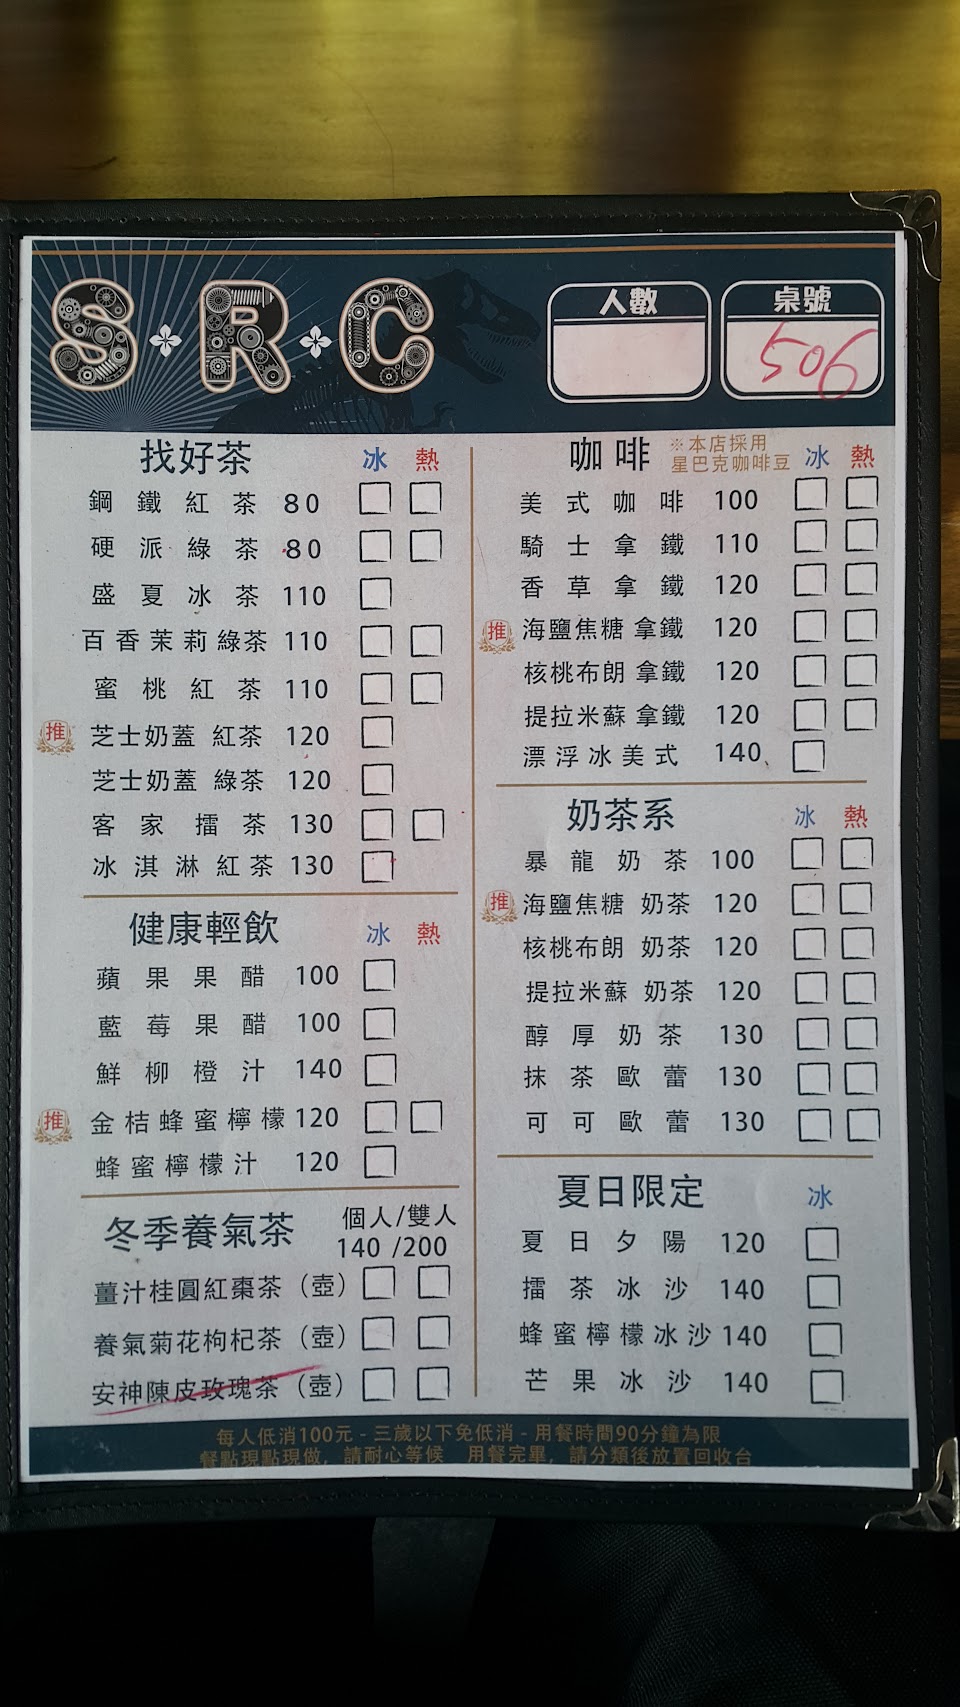 S R C
人數
桌號
506
找好茶 冰 熱
鋼鐵紅茶 80
硬派綠茶 80
盛夏冰茶 110
百香茉莉綠茶 110
蜜桃紅茶 110
推 芝士奶蓋 紅茶 120
芝士奶蓋 綠茶 120
客家擂茶 130
冰淇淋紅茶 130
健康輕飲 冰 熱
蘋果果醋 100
藍莓果醋 100
鮮柳橙汁 140
推 金桔蜂蜜檸檬 120
蜂蜜檸檬汁 120
冬季養氣茶 個人/雙人
140 /200
薑汁桂圓紅棗茶（壺）
養氣菊花枸杞茶（壺）
安神陳皮玫瑰茶（壺）
咖啡 ※本店採用
星巴克咖啡豆 冰 熱
美式咖啡 100
騎士拿鐵 110
香草拿鐵 120
推 海鹽焦糖 拿鐵 120
核桃布朗 拿鐵 120
提拉米蘇 拿鐵 120
漂浮冰美式 140
奶茶系 冰 熱
暴龍奶茶 100
推 海鹽焦糖 奶茶 120
核桃布朗 奶茶 120
提拉米蘇 奶茶 120
醇厚奶茶 130
抹茶歐蕾 130
可可歐蕾 130
夏日限定 冰
夏日夕陽 120
擂茶冰沙 140
蜂蜜檸檬冰沙 140
芒果冰沙 140
每人低消100元 - 三歲以下免低消 - 用餐時間90分鐘為限
餐點現點現做，請耐心等候 用餐完畢，請分類後放置回收台